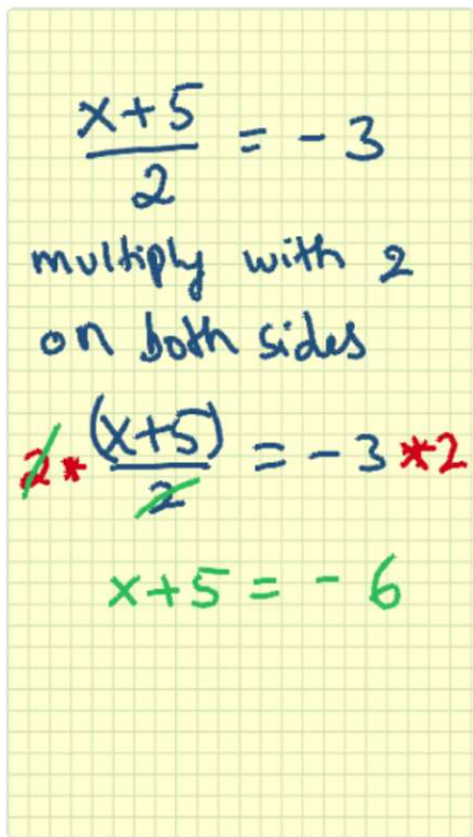 x+5/2 = -3
multiply with 2
on both sides
2*(x+5)/2 = -3*2
x+5 = -6